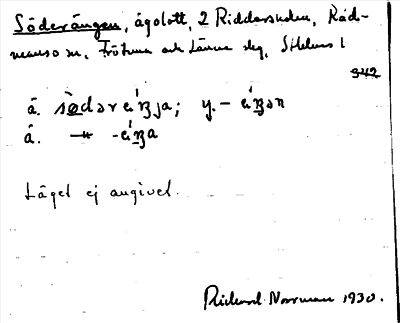 Söderängen, ägolott, 2 Riddersholm, Råd-
manso sn, Frötuna och Länna slg, Sthlms l
342
ä. sǿdərei̯ŋja; y. – ei̯ŋən
ä. –"– -ei̯ŋa
Läget ej angivet.
Rickard Norrman 1930.